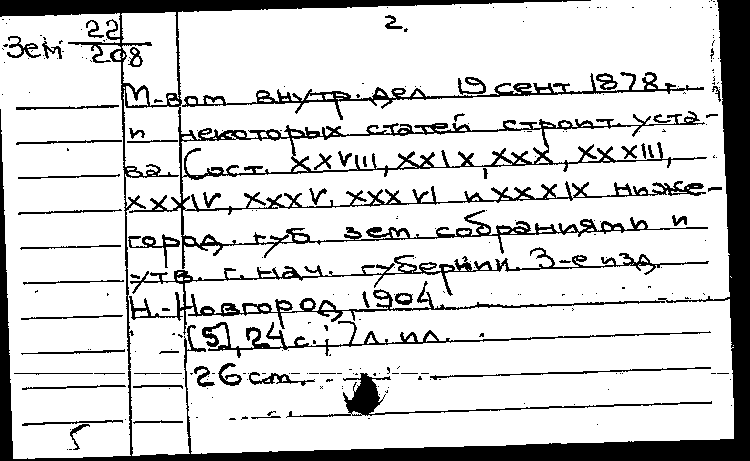 2.
Зем 22/208
М-вом внутр. дел 19 сент 1878 г.
и некоторых статей строит. уста-
ва. Сост. XXVIII, XXIX, XXX, XXXIII,
XXXIV, XXXV, XXXVI и XXXIX ниже-
город. губ. зем. собраниями и
утв. г. нач. губернии. 3-е изд.
Н.-Новгород, 1904.
[5], 24 с.; 7 л. пл.
26 см.
5